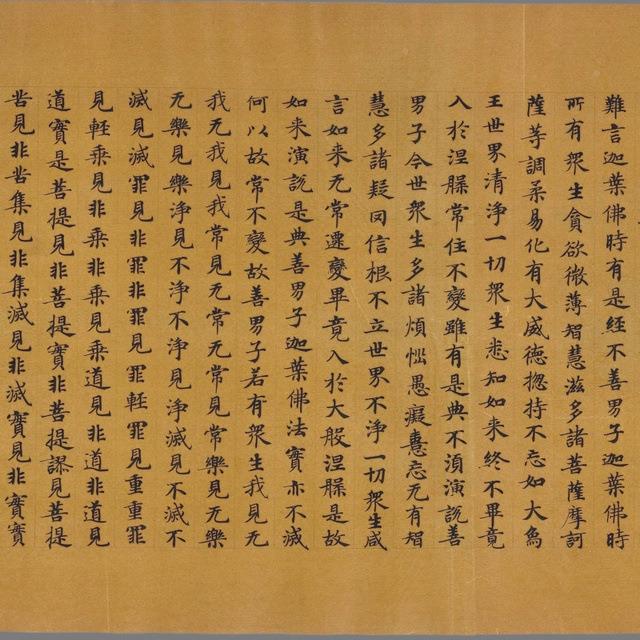 難言迦葉佛時有是経不善男子迦葉佛時
所有衆生貪欲微薄智慧滋多諸菩薩摩訶
薩等調柔易化有大威德揔持不忘如大烏
王世界清淨一切衆生悉知如来終不畢竟
入於涅槃常住不變雖有是典不須演說善
男子今世衆生多諸煩惱愚癡憙忘无有智
慧多諸疑囘信根不立世界不淨一切衆生咸
言如来无常遷變畢竟入於大般涅槃是故
如来演說是典善男子迦葉佛法實亦不滅
何以故常不變故善男子若有衆生我見无
我无我見我常見无常无常見常樂見无樂
无樂見樂淨見不淨不淨見淨滅見不滅不
滅見滅罪見非罪非罪見罪輊罪見重重罪
見輊乘見非乘非乘見乘道見非道非道見
道實是菩提見非菩提實非菩提謬見菩提
苦見非苦集見非集滅見非滅實見非實實